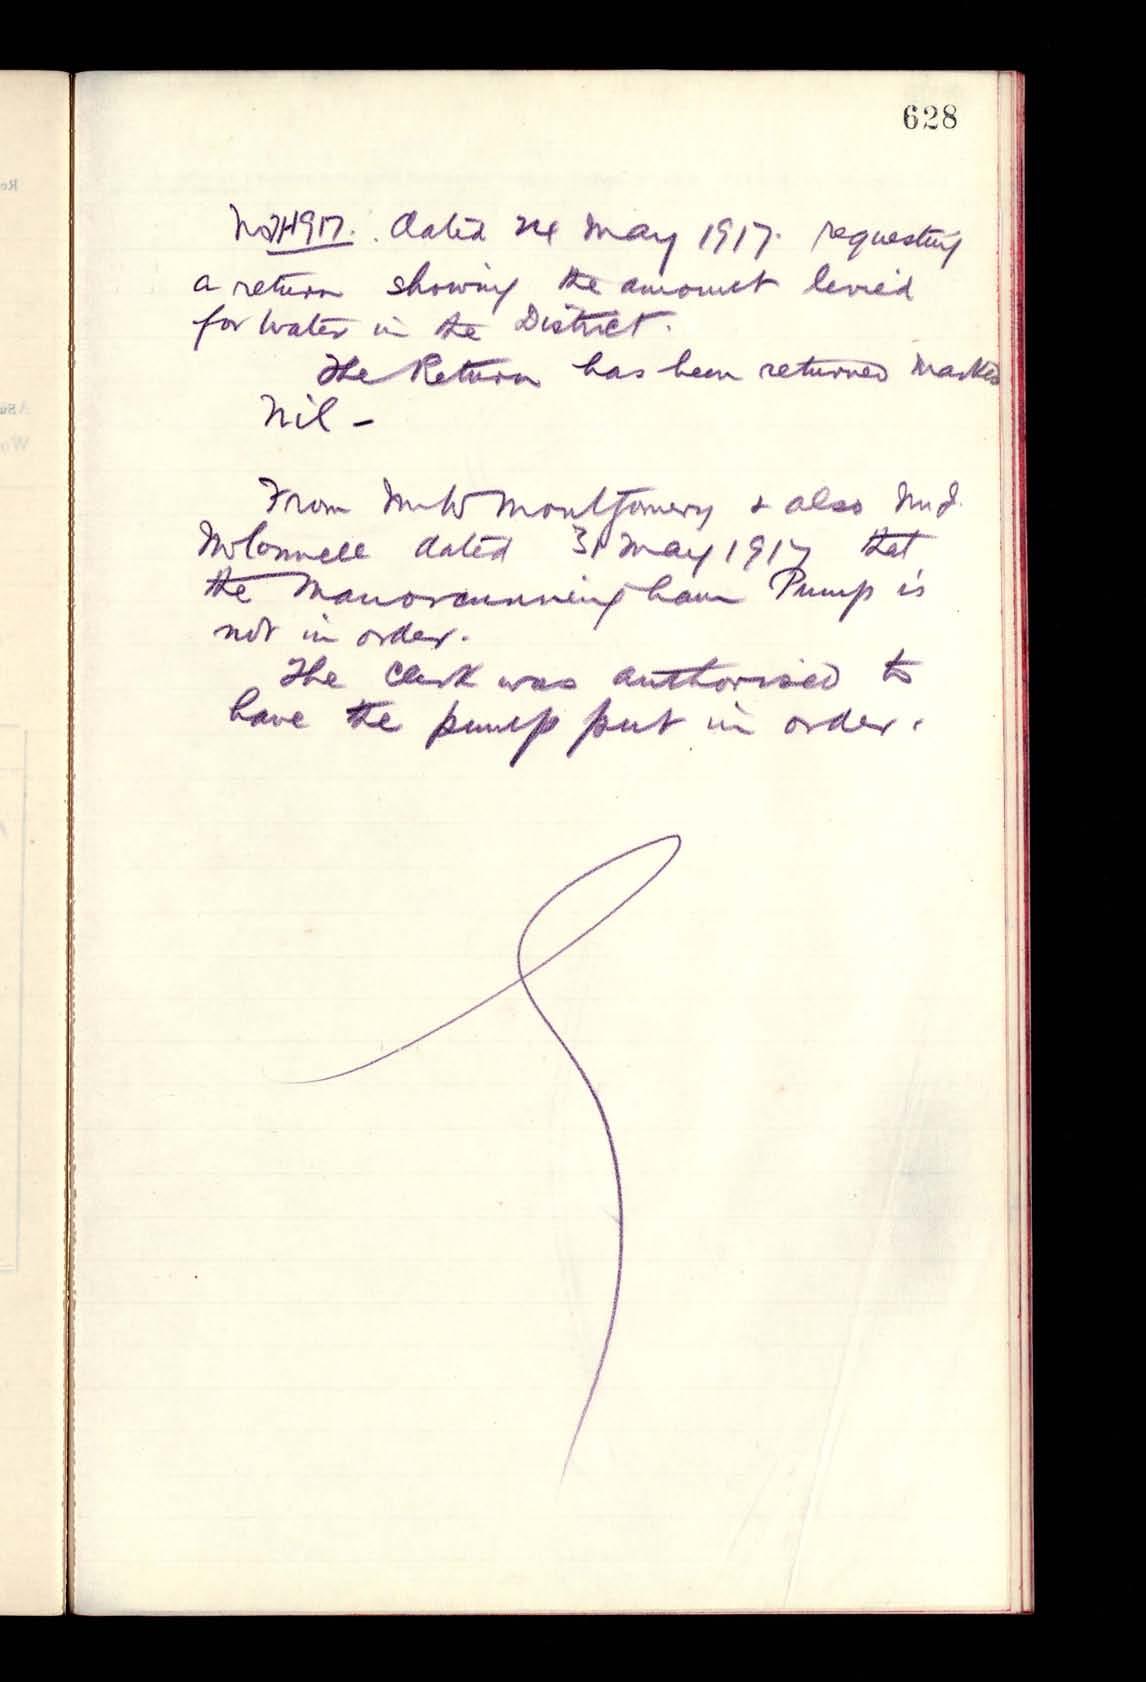 628
dated 24 May 1917. requesting
a return showing the amount levied
for water in the District.
The Return has been returned marked
Nil -
From Mr W Montgomery & also Mr J.
McConnell dated 31 May 1917 that
the Manorcunningham Pump is
not in order.
The Clerk was authorised to
have the pump put in order.